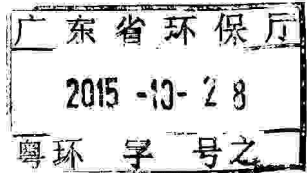 广东省环保厅
2015 -10- 28
粤环 字 号之